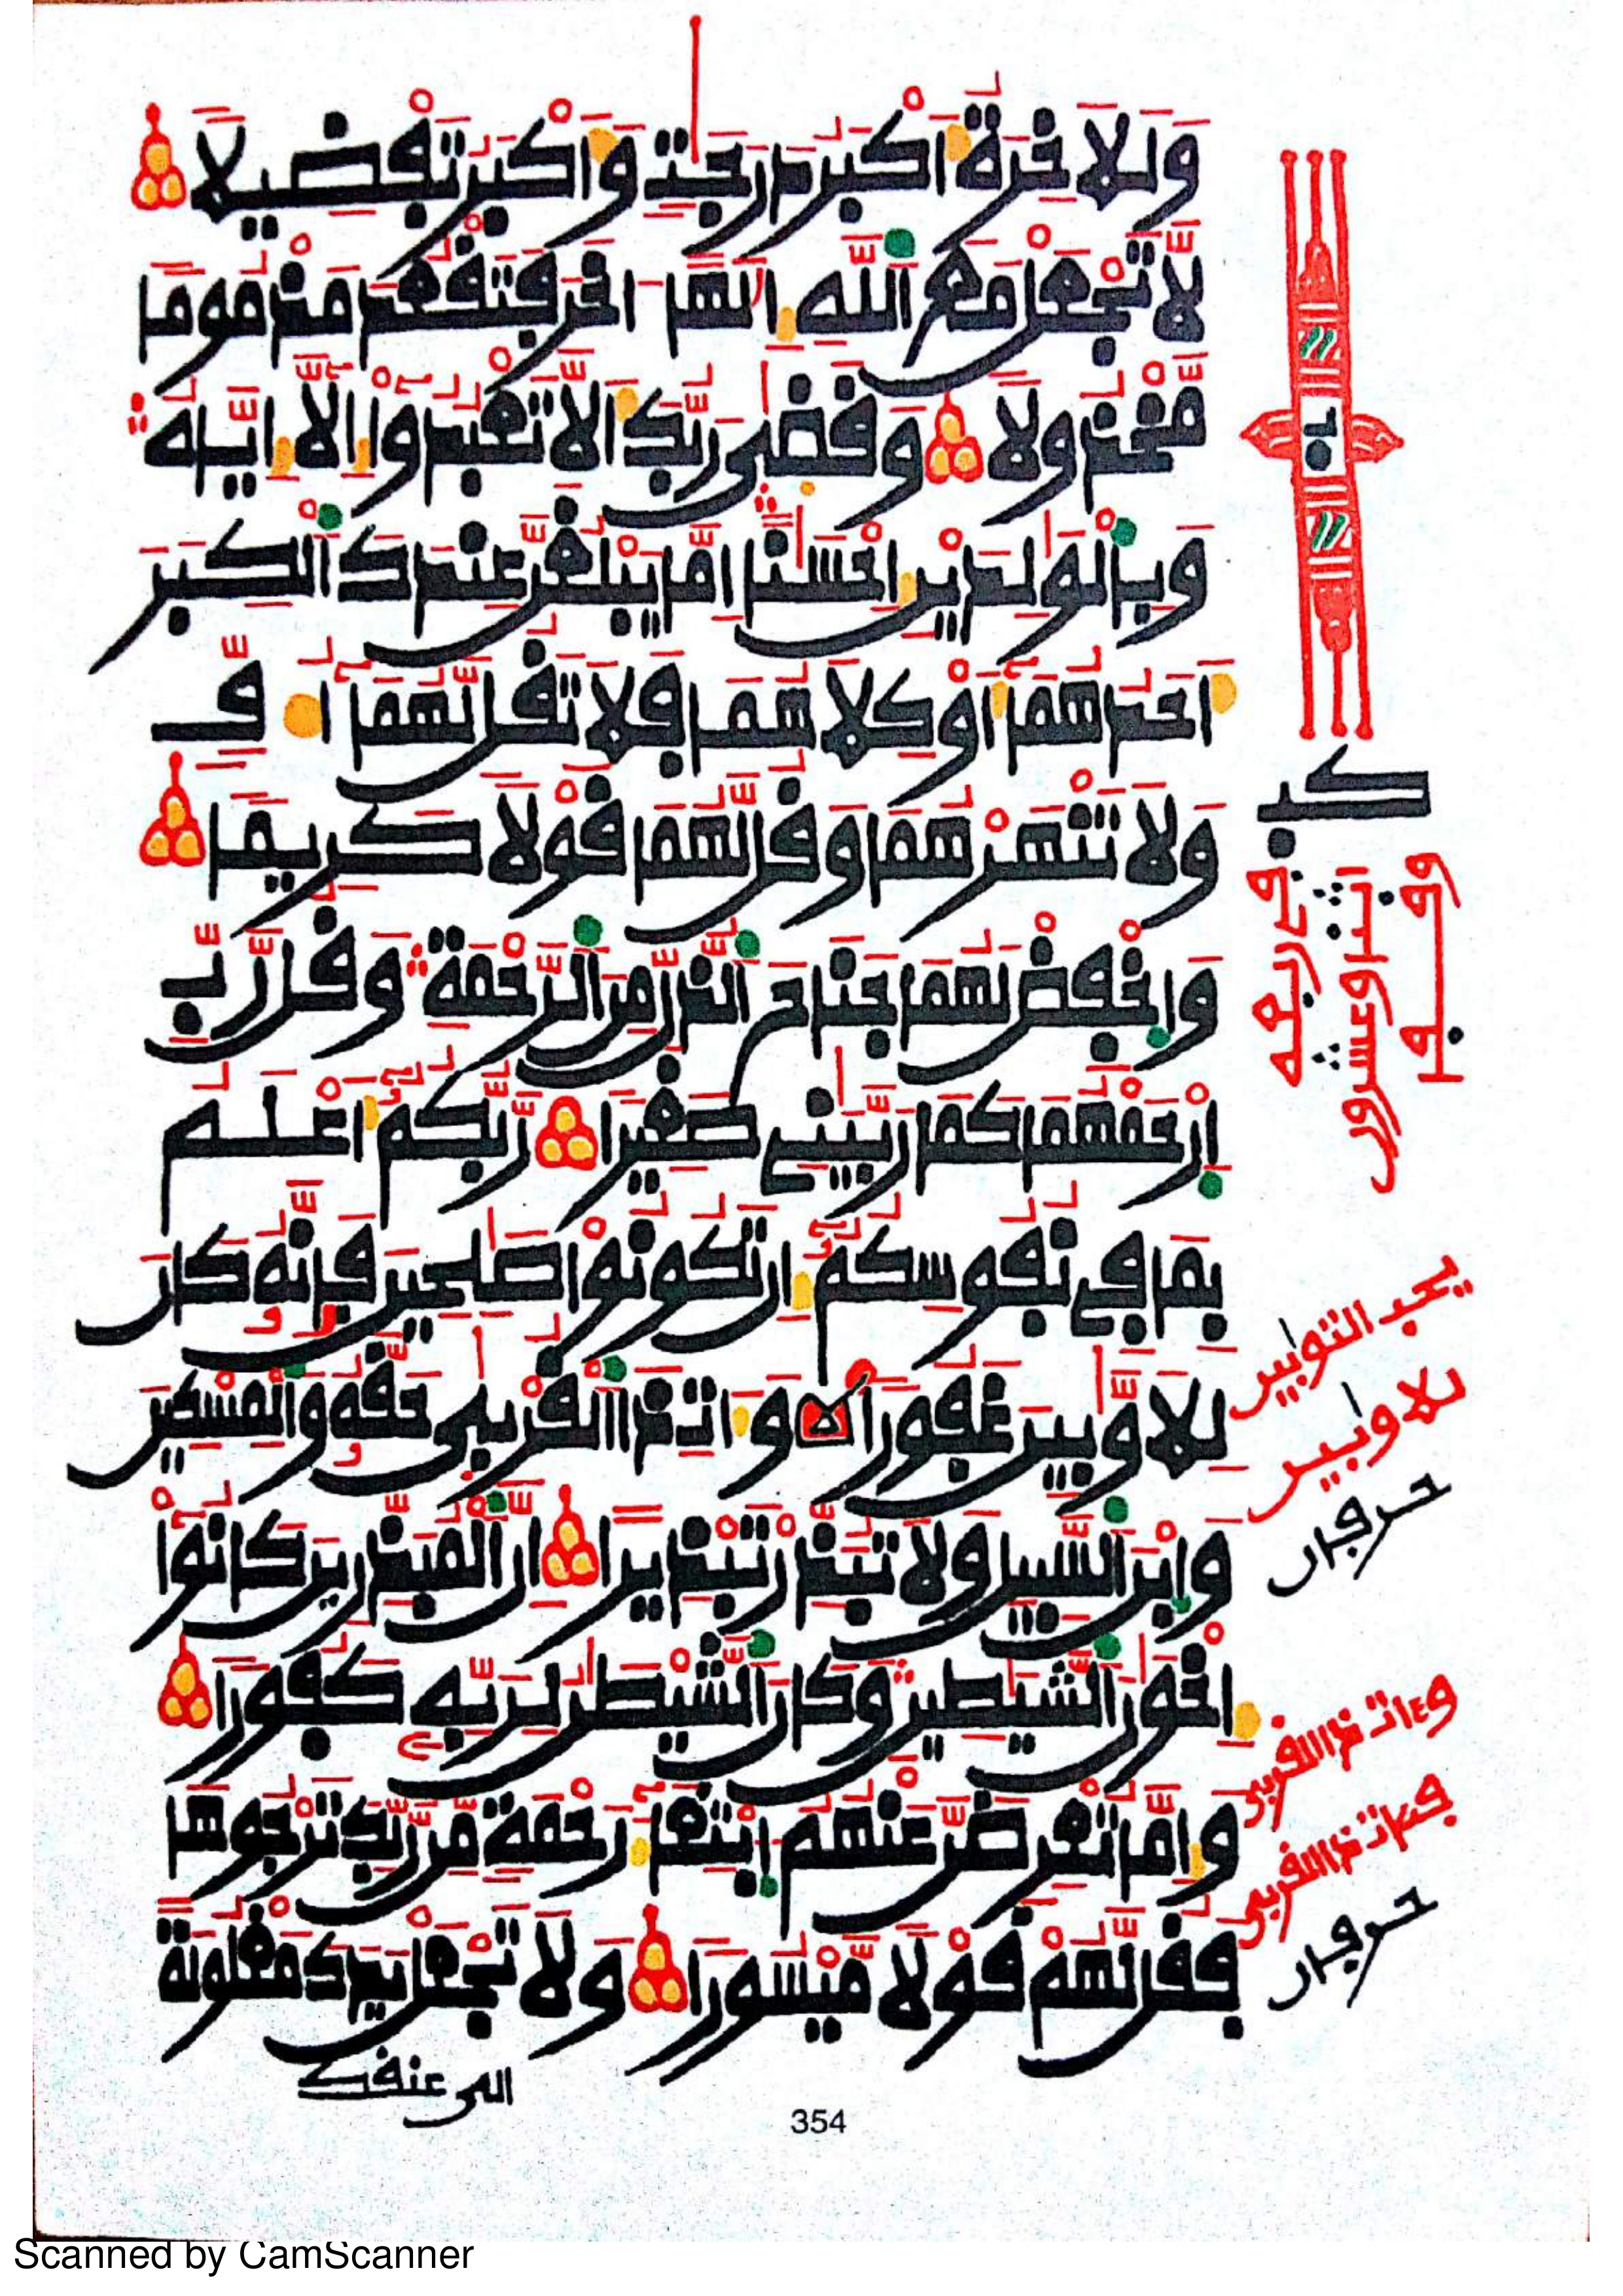 وللاخرة اكبر درجت واكبر تفضيلا
لا تجعل مع الله الها اخر فتقعد مذموما
مخذولا وقضى ربك الا تعبدوا الا اياه
وبالولدين احسنا اما يبلغن عندك الكبر
احدهما او كلاهما فلا تقل لهما اف
ولا تنهرهما وقل لهما قولا كريما
واخفض لهما جناح الذل من الرحمة وقل رب
ارحمهما كما ربيني صغيرا ربكم اعلم
بما في نفوسكم ان تكونوا صلحين فانه كان
للاوبين غفورا وات ذا القربى حقه والمسكين
وابن السبيل ولا تبذر تبذيرا ان المبذرين كانوا
اخون الشيطين وكان الشيطن لربه كفورا
واما تعرضن عنهم ابتغا رحمة من ربك ترجوها
فقل لهم قولا ميسورا ولا تجعل يدك مغلولة
الى عنقك
يحب التوابين
للاوابين
حرفان
وءات ذا القربى
فءات ذا القربى
حرفان
354
Scanned by CamScanner